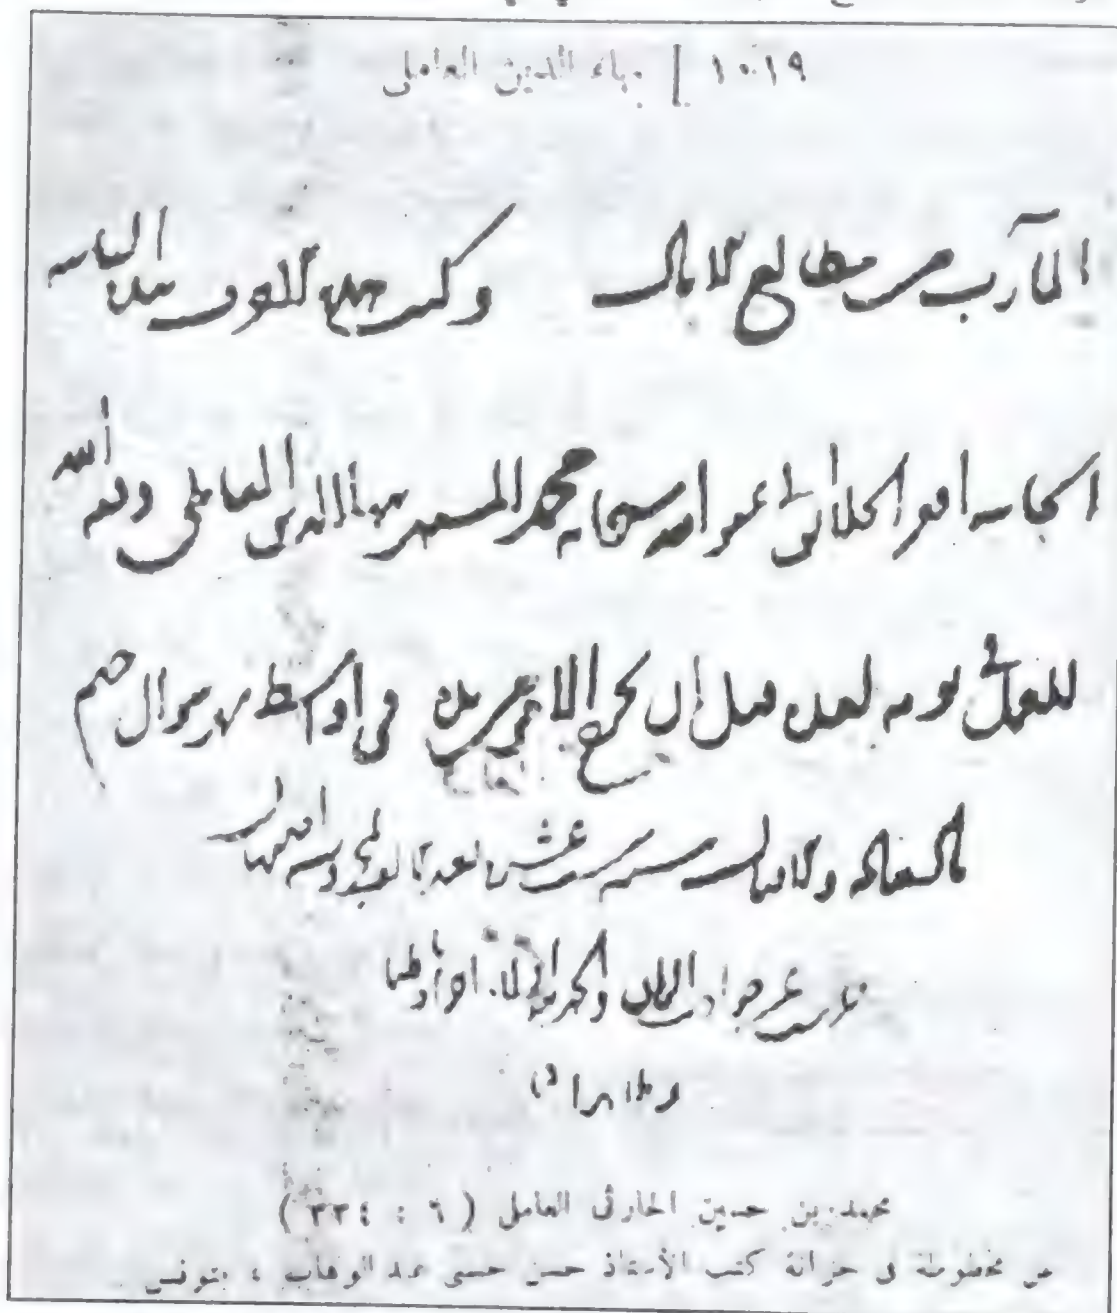 ١٠١٩ ] بهاء الدين العاملى
المآرب من مطالع الاماك وكتب هذه الاحرف بيده
الجانيه افقر الخلائق الى عفو الله سبحانه محمد المشتهر ببهاء الدين العاملى وفقه الله
للعمل فى يومه لغده قبل ان يخرج الامر من يده فى اواسط شهر شوال ختم
بالسعاده والاقبال سنة عشر بعد الالف بمحروسه اصفهان
عن حوادث الزمان والحمد لله اولا وآخرا وباطنا
وظاهرا
محمد بن حسين الحارثى العاملى ( ٦ : ٣٣٤ )
عن مخطوطة فى خزانة كتب الأستاذ حسن حسنى عبد الوهاب ، بتونس